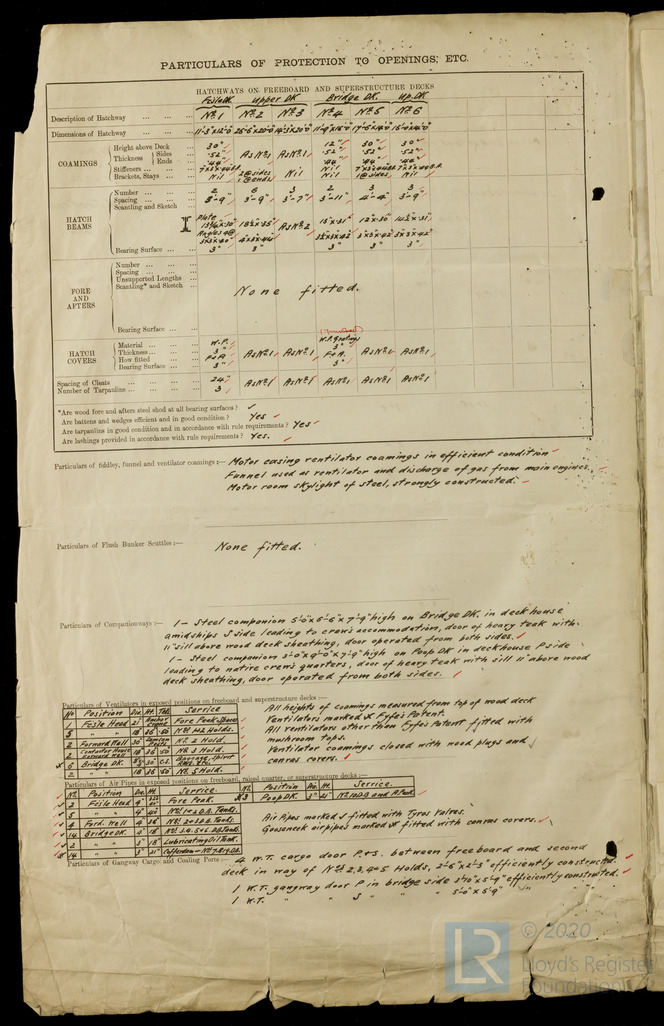 PARTICULARS OF PROTECTION TO OPENINGS, ETC.
HATCHWAYS ON FREEBOARD AND SUPERSTRUCTURE DECKS
Fo'sle Dk. Upper DK Bridge DK. Up. DK
Description of Hatchway ... Nº 1 Nº 2 Nº 3 Nº 4 Nº 5 Nº 6
Dimensions of Hatchway
COAMINGS
Height above Deck ... 30" 12" 30" 30"
Thickness Sides ... .52" As Nº 1 As Nº 1 .52" .52" .52"
Ends ... .44" .44" .44" .44"
Stiffeners ... Nil
Brackets, Stays ... Nil 2 @ sides 1 @ ends Nil Nil 1 @ sides Nil
HATCH BEAMS
Number ... 2 6 3 2 3 3
Spacing ... 3'-9" 3'-9" 3'-7" 3'-11" 4'-4" 3'-9"
Scantling and Sketch
Plate
As Nº 2
Angles 4 @
Bearing Surface ... 3" 3" 3" 3" 3"
FORE AND AFTERS
Number ...
Spacing ...
Unsupported Lengths ...
Scantling* and Sketch ...
None fitted.
Bearing Surface ...
HATCH COVERS
Material ... W.P. W.P. Gratings
Thickness ... 3" As Nº 1 As Nº 1 3" As Nº 1 As Nº 1
How fitted ... F & A F & A
Bearing Surface ... 3" 3"
Spacing of Cleats ... 24" As Nº 1 As Nº 1 As Nº 1 As Nº 1 As Nº 1
Number of Tarpaulins ... 3
*Are wood fore and afters steel shod at all bearing surfaces ?
Are battens and wedges efficient and in good condition ? Yes
Are tarpaulins in good condition and in accordance with rule requirements ? Yes
Are lashings provided in accordance with rule requirements ? Yes.
Particulars of fiddley, funnel and ventilator coamings :— Motor casing ventilator coamings in efficient condition
Funnel used as ventilator and discharge of gas from main engines.
Motor room skylight of steel, strongly constructed.
Particulars of Flush Bunker Scuttles :— None fitted.
Particulars of Companionways :— 1 - Steel companion 5'-0" x 5'-6" x 7'-9" high on Bridge DK. in deck house
amidships S side leading to crew's accommodation, door of heavy teak with
11" sill above wood deck sheathing, door operated from both sides.
1 - Steel companion 3'-0" x 9'-0" x 7'-9" high on Poop DK in deckhouse P side
leading to native crew's quarters, door of heavy teak with sill 11" above wood
deck sheathing, door operated from both sides.
Particulars of Ventilators in exposed positions on freeboard and superstructure decks :—
Nº Position Dia. Ht. Tak. Service
1 Fo'sle Head 21 Fore Peak Space
5 " " 18 36 .50 Nº 1 & 2 Holds.
2 Forward Well 30 Nº 2 Hold.
2 18 36 .50 Nº 3 Hold.
6 Bridge DK. 30" C.I.
2 " 18 36 .50 Nº 5 Hold.
All heights of coamings measured from top of wood deck
Ventilators marked X Fyfe's Patent.
All ventilators other than Fyfe's Patent fitted with
mushroom tops.
Ventilator coamings closed with wood plugs and
canvas covers.
Particulars of Air Pipes in exposed positions on freeboard, raised quarter, or superstructure decks :—
Nº Position Dia. Ht. Service. Nº Position Dia. Ht. Service.
2 Fo'sle Head 4" Fore Peak. 3 Poop DK. 3" 21" Nº 10 D.B and A. Peak.
5 " " 4" Nº 1 & 2 D.B. Tanks.
4 Ford. Well 4" 36" Nº 2 & 3 D.B. Tanks.
14 Bridge DK. 4" 18" Nº 3.4.5 & 6 D.B. Tanks.
2 " " 3" 18" Lubricating Oil Tank.
14 " " 3" 21" Cofferdam - Nº 7.8 & 9 D.B.
Air Pipes marked with Tyros Valves.
Gooseneck airpipes marked X fitted with canvas covers.
Particulars of Gangway Cargo and Coaling Ports :— 4 W.T. cargo door P. & S. between freeboard and second
deck in way of Nºs 2, 3, 4 & 5 Holds, 2'-6" x 2'-3" efficiently constructed.
1 W.T. gangway door P in bridge side 3'10" x 5'-9" efficiently constructed.
1 W.T. " " S " " 5'-0" x 5'-9" " "
© 2020
LR
Lloyd's Register
Foundation